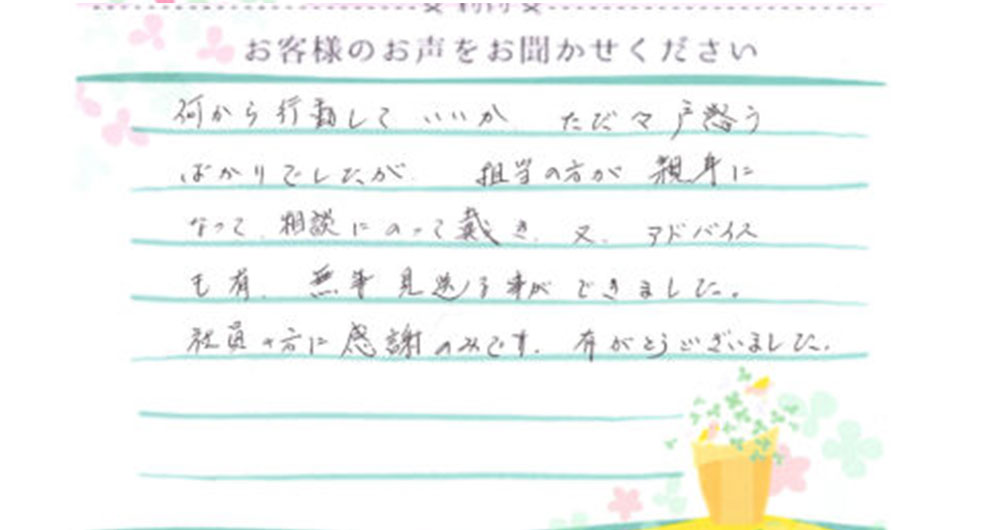 お客様のお声をお聞かせください
何から行動して いいか ただ々 戸惑う
ばかりでしたが 担当の方が 親身に
なって、相談にのって戴き、又、アドバイス
も有、無事見送る事ができました。
社員の方に感謝のみです。有がとうございました。